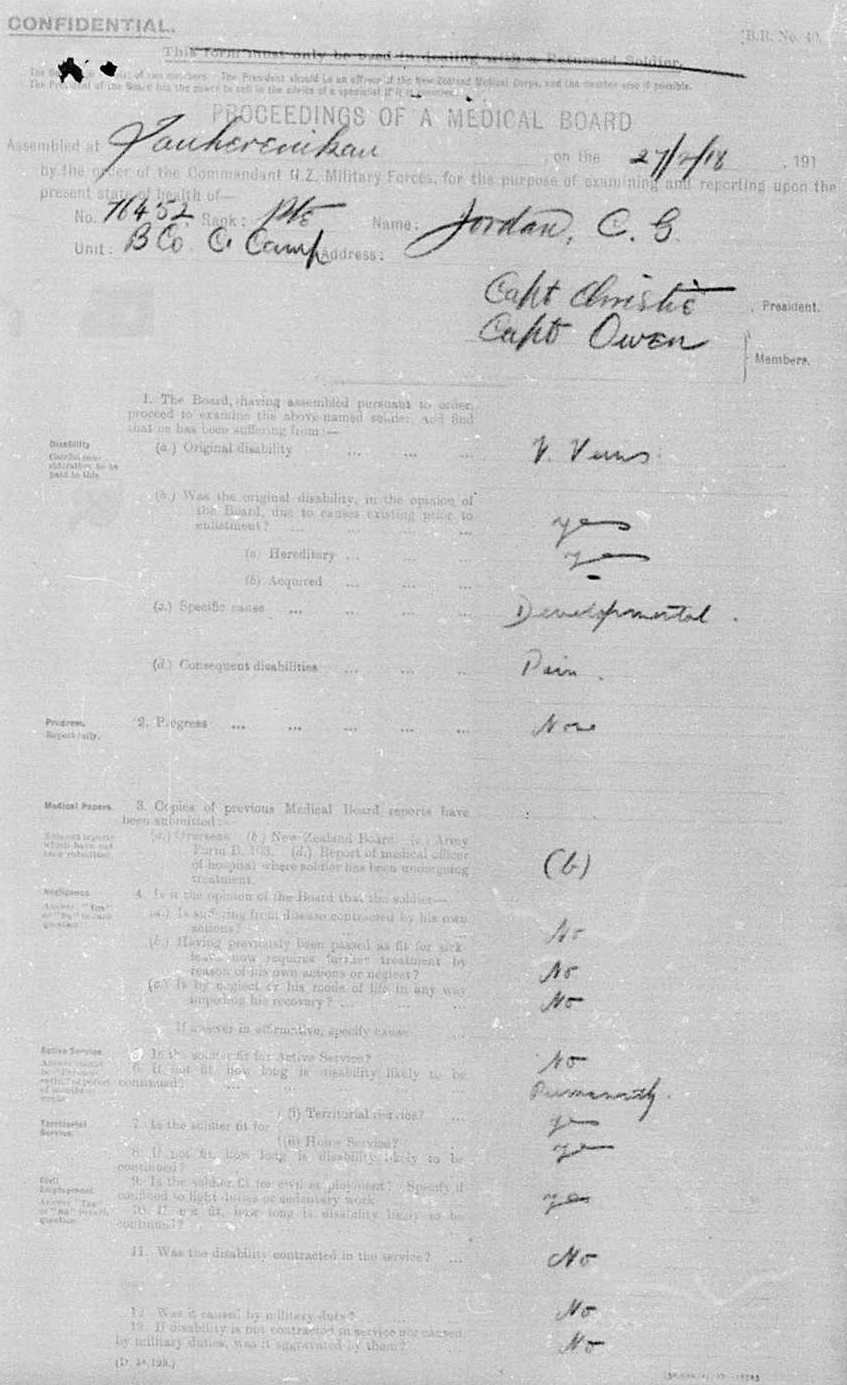 CONFIDENTIAL.
[B.R. No. 40.
This form must only be used in dealing with a Returned Soldier.
The President should be an officer of the New Zealand Medical Corps, and the member also if possible.
The President of the Board has the power to call in the advice of a specialist if it is
PROCEEDINGS OF A MEDICAL BOARD
Assembled at Tauherenikau on the 27/2/18, 191
by the order of the Commandant N.Z. Military Forces, for the purpose of examining and reporting upon the
present state of health of—
No. 76452 Rank: Pte Name: Jordan, C. G.
Unit: B Co. C. Camp Address:
Capt Christie, President.
Capt Owen
Members.
1. The Board, having assembled pursuant to order,
proceed to examine the above-named soldier, and find
that he has been suffering from:—
Disability
(a.) Original disability ... ... ... V. Veins
(b.) Was the original disability, in the opinion of
the Board, due to causes existing prior to
enlistment? ... yes
(a) Hereditary ... yes
(b) Acquired ... -
(c.) Specific cause ... Developmental.
(d.) Consequent disabilities ... Pain.
Progress.
Report fully.
2. Progress ... None
Medical Papers.
3. Copies of previous Medical Board reports have
been submitted:—
(a.) Overseas. (b.) New Zealand Board. (c.) Army
Form B. 103. (d.) Report of medical officer
of hospital where soldier has been undergoing
treatment. (b)
Negligence.
Answer "Yes"
or "No" to each
question.
4. Is it the opinion of the Board that the soldier—
(a.) Is suffering from disease contracted by his own
actions? No
(b.) Having previously been passed as fit for sick-
leave now requires further treatment by
reason of his own actions or neglect? No
(c.) Is by neglect or his mode of life in any way
impeding his recovery? ... No
If answer in affirmative, specify cause
Active Service.
5. Is the soldier fit for Active Service? No
6. If not fit, how long is disability likely to be
continued? Permanently.
Territorial
Service.
7. Is the soldier fit for
(i) Territorial service? yes
(ii) Home Service? yes
8. If not fit, how long is disability likely to be
continued?
Civil
Employment.
Answer "Yes"
or "No" to each
question.
9. Is the soldier fit for civil employment? Specify if
confined to light duties or sedentary work yes
10. If not fit, how long is disability likely to be
continued?
11. Was the disability contracted in the service? ... No
12. Was it caused by military duty? No
13. If disability is not contracted in service nor caused
by military duties, was it aggravated by them? No